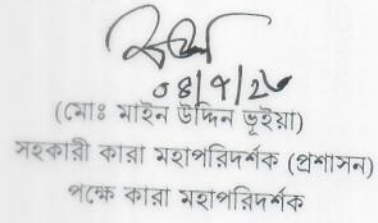 ০৪/৭/২৬
(মোঃ মাইন উদ্দিন ভূইয়া)
সহকারী কারা মহাপরিদর্শক (প্রশাসন)
পক্ষে কারা মহাপরিদর্শক